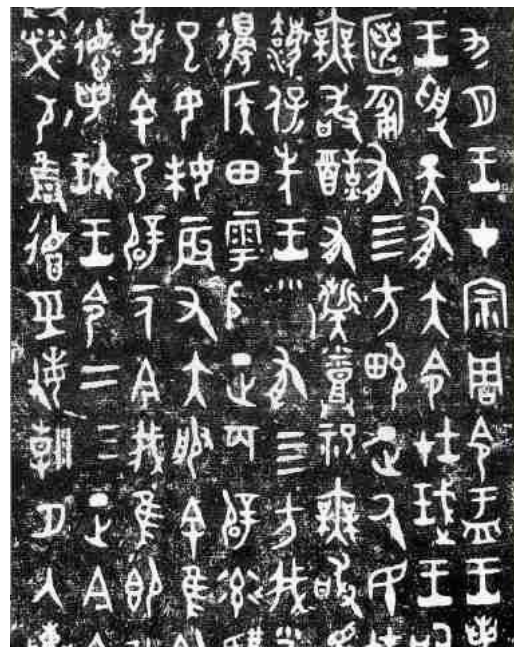 九月王才宗周令盂王
王受天有大令在珷王
匿匍有四方畯正氒民
無敢酖有祡烝祀無敢
灋保先王有四方我
邊侯田雩殷正百辟率
巳女妹辰又大服余隹
克余乃辟一人今我隹即
德若玟王令二三正今
敬雍德經敏朝夕入